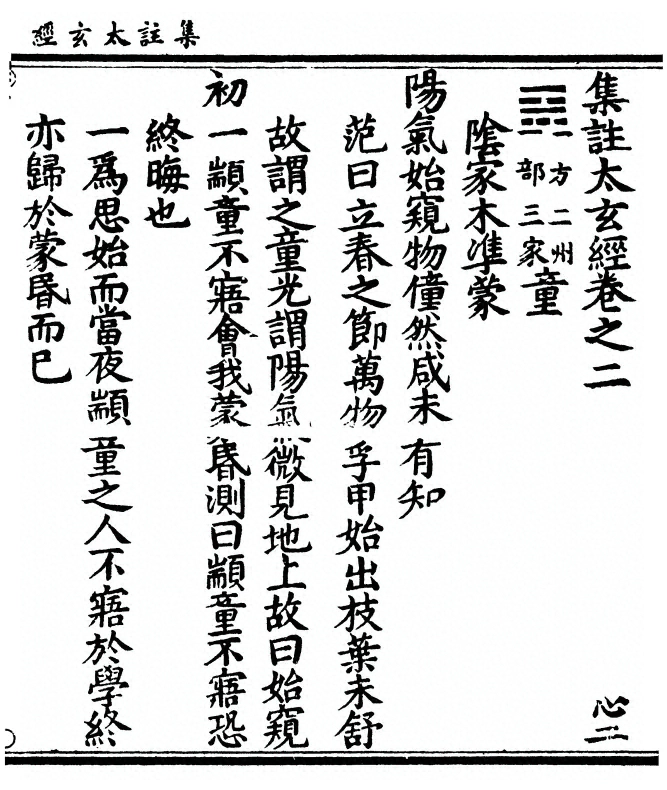 集註太玄經
集註太玄經卷之二
心二
一方二州
一部三家
童
陰家木準蒙
陽氣始窺物僮然咸未有知
范曰立春之節萬物孚甲始出枝葉未舒
故謂之童光謂陽氣微見地上故曰始窺
初一顓童不寤會我蒙昬測曰顓童不寤恐
終晦也
一爲思始而當夜顓童之人不寤於學終
亦歸於蒙昬而已